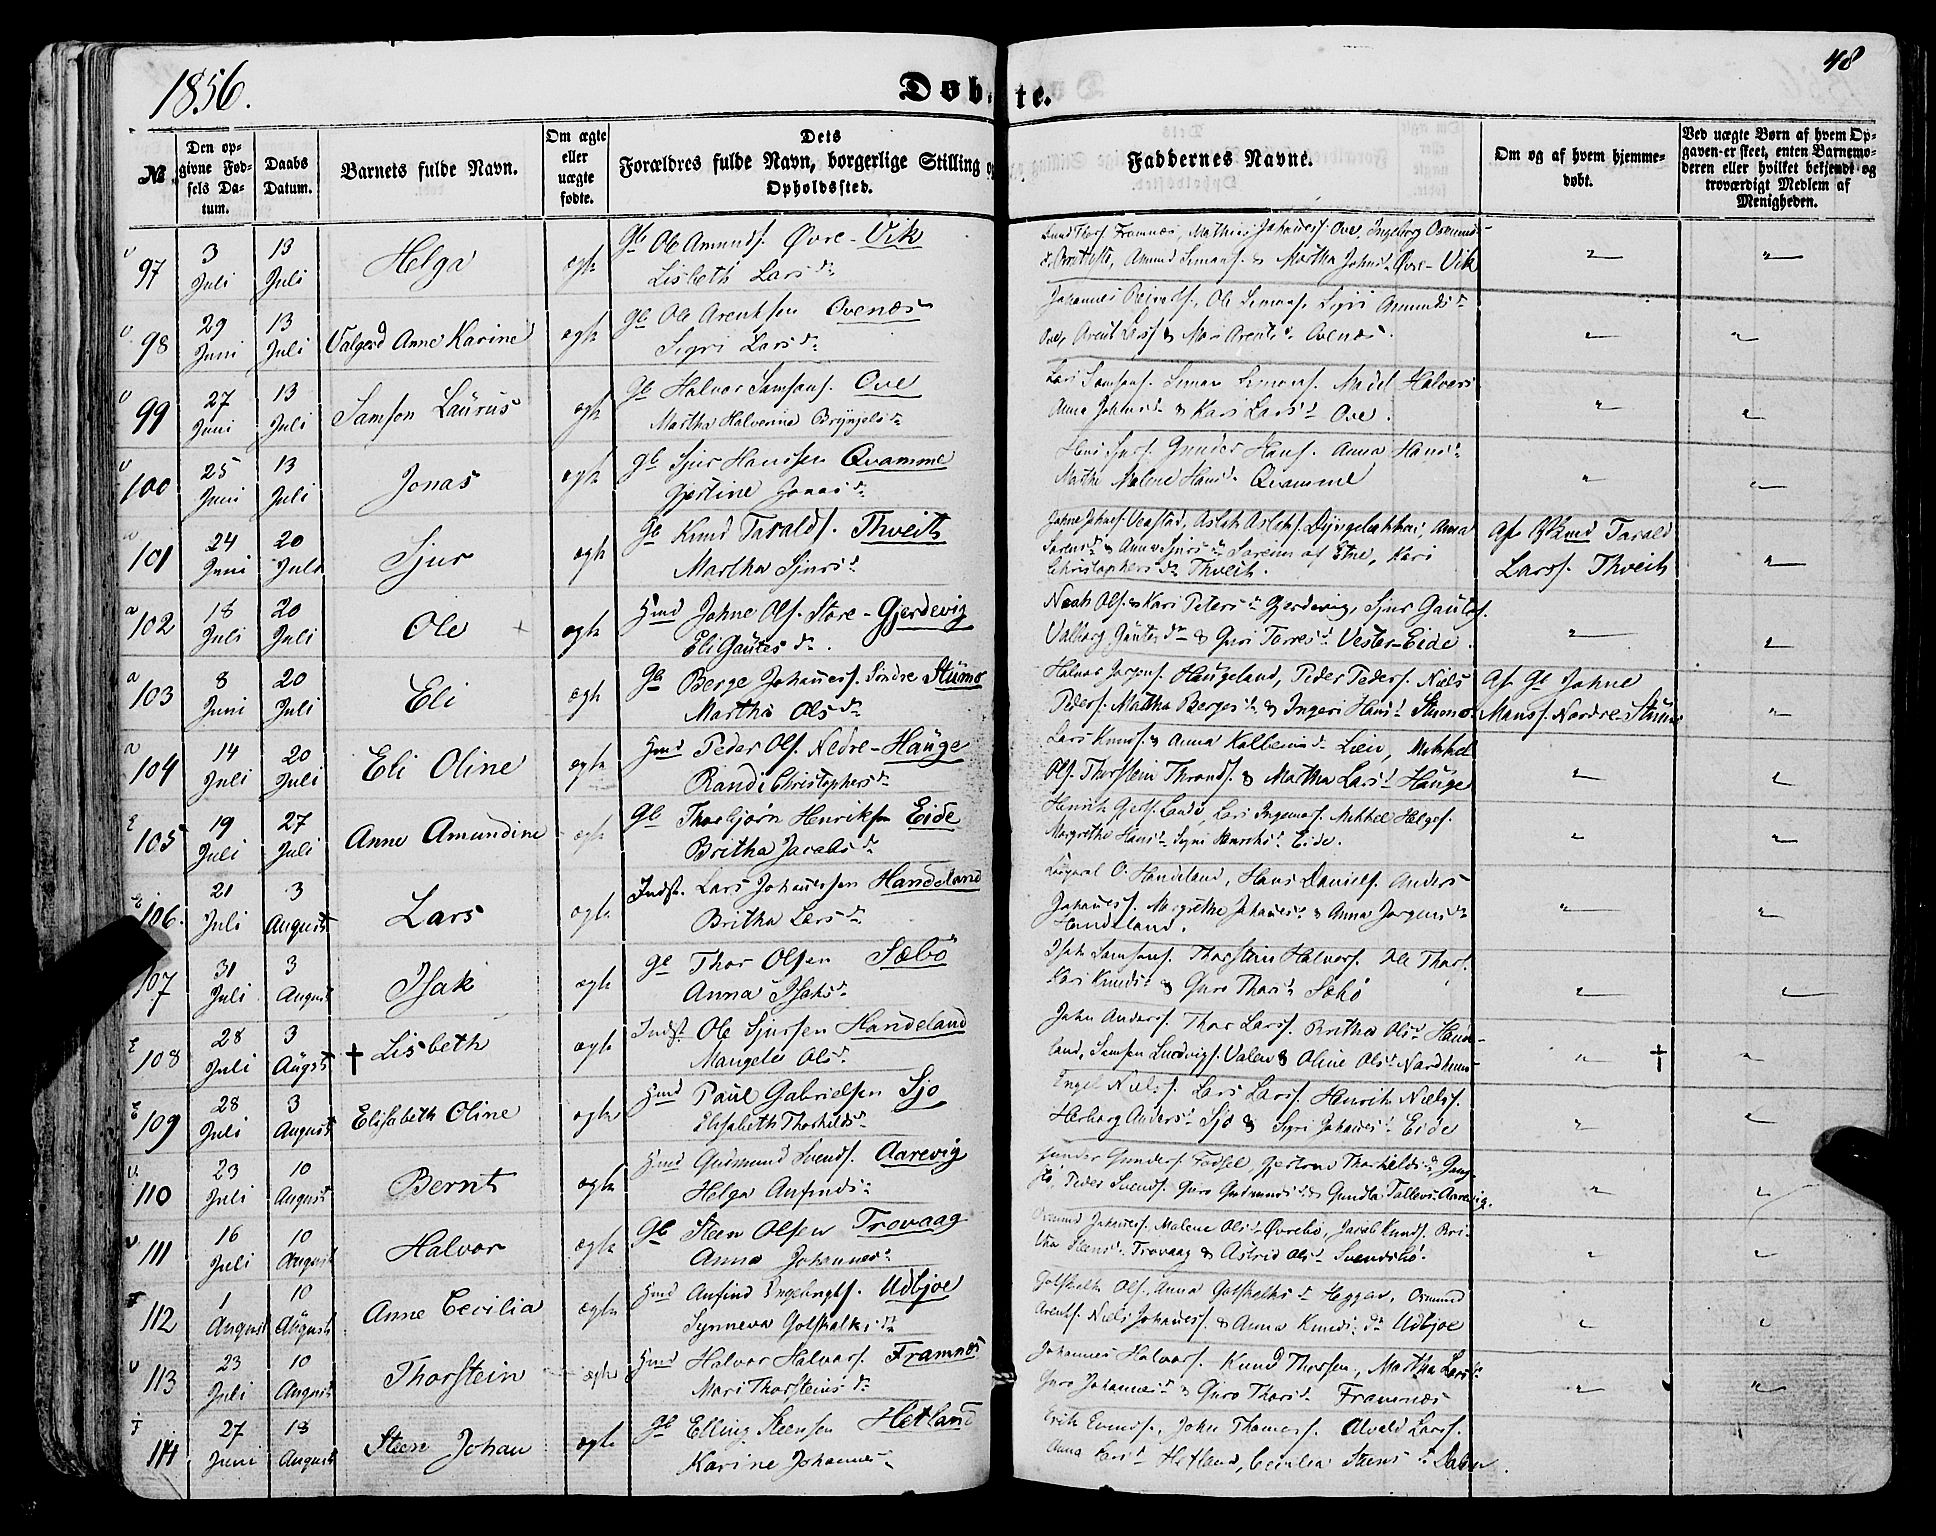 1856.
Døbte.
48
№
Den opgivne Fødsels Datum.
Daabs Datum.
Barnets fulde Navn.
Om ægte eller uægte fødte.
Dets Forældres fulde Navn, borgerlige Stilling og Opholdssted.
Faddernes Navne.
Om og af hvem hjemmedøbt.
Ved uægte Børn af hvem Opgaven er skeet, enten Barnemoderen eller hvilket bekjendt og troværdigt Medlem af Menigheden.
97 3 Juli 13 Juli Helga ægte Gb Ole Amunds. Øvre-Vik
Lisbeth Larsdr
Amund Simons. & Martha Johnsd Øvre-Vik
98 29 Juni 13 Juli Valgerd Anne Karine ægte Gb Ole Arentsen Ovenæs
Sigri Larsdr
Ove, Arent Larss & Mari Arentsd Ovenæs.
99 27 Juni 13 Juli Samson Laurus ægte Gb Halvor Samsons. Ove
Martha Halverine Brynjelsdr
Lars Samsons. Simon Simons. Madel Halvors
Anna Johnsdr & Kari Larsd Ove.
100 25 Juni 13 Juli Jonas ægte Gb Sjur Hanssen Qvamme
Gjertine Jonasdr
Gunder Hans. Anna Hansdr
Marthe Malene Hansdr Qvamme
101 24 Juni 20 Juli Sjur ægte Gb Knud Taralds. Thveit
Martha Sjursd
Sørensdr & Anna Sjursdr Søreim af Etne, Kari
Christophersdr Thveit.
Af Knud Tarald
Larss. Thveit
102 18 Juli 20 Juli Ole ægte Hmd Johne Ols. Store-Gjerdevig
Eli Gautesdr.
Neah Ols. & Kari Petersdr Gjerdevig, Sjur Gautes.
Valborg Gautesdr & Guri Torresd Vester-Eide.
103 8 Juni 20 Juli Eli ægte Gb Berge Johannes. Søndre Stumo
Martha Olsdr
Halvor Jørgens. Haugeland, Peder Peders. Niels
Peders. Martha Bergesdr & Ingeri Hansd Stumo.
Af Gb Johne
Mons. Nordre Stumo
104 14 Juli 20 Juli Eli Oline ægte Hmd Peder Ols. Nedre-Hauge
Randi Christophersdr
Lars Knuds. & Anna Kolbeinsdr Lien, Mikkel
Ols. Thorstein Thronds. & Martha Larsd Hauge
105 19 Juli 27 Juli Anne Amundine ægte Gb Thorbjørn Henriksen Eide
Britha Jacobsdr
Lars Ingemars. Mikkel Helges.
Margrethe Hansd Sigri Henriksd Eide.
106. 21 Juli 3 August Lars ægte Indst. Lars Johannessen Handeland
Britha Larsdr
O. Handeland, Hans Daniels. Anders
Johannes. Margrethe Johannesd & Anna Jørgensdr
Handeland.
107 31 Juli 3 August Isak ægte Gb Thor Olsen Sæbø
Anna Isaksdr
Isak Samsons. Thorstein Halvors. Ole Thors.
Kari Knudsd & Guro Thorsdr Sæbø
108 28 Juli 3 Augst † Lisbeth ægte Indst. Ole Sjursen Handeland
Mangele Olsdr.
John Anders. Thor Larss. Britha Olsd Hande-
land, Samson Ludvigs. Valen & Oline Olsd Nordhuus †
109 28 Juli 3 August Elisabeth Oline ægte Hmd Paul Gabrielsen Sjo
Elisabeth Thorkildsdr
Engel Niels. Lars Larss. Henrik Nielss.
Herborg Andersd Sjo & Sigri Johannesd Eide
110 23 Juli 10 August Bernt ægte Hmd Gudmund Svends. Aarevig
Helga Anfindsdr
Gunder Gunders. Fodsel, Gjertrud Thorkildsdr
Peder Svends. Guro Gudmundsdr & Gundla Tallevsd Aarevig.
111 16 Juli 10 August Halvor ægte Gb Steen Olsen Trovaag
Anna Johannesdr
Osmund Johannes. Malene Olsd Øvrebø, Jacob Knuds. Bri-
tha Steensd Trovaag & Astrid Olsd Svendsbø.
112 1 August 10 August Anne Cecilia ægte Hmd Anfind Engelbrgts. Udbjoe
Synneva Golskalksdr
Golskalk Ols. Anna Golskalksdr Heggen, Osmund
Arents. Niels Johannes. & Anna Knudsdr Udbjoe
113 23 Juli 10 August Thorstein ægte Hmd Halvor Halvors. Framnæs
Mari Thorsteinsdr
Johannes Halvors. Knud Thorsen, Martha Larsdr
Guro Johannesdr & Guro Thorsdr Framnæs
114 27 Juni 18 August Steen Johan ægte Gb Elling Steensen Hetland
Karine Johannesdr
Erik Evends., John Thomes. Alvald Larss.
Anna Larsd Hetland, Cecilia Steensdr Dalen.